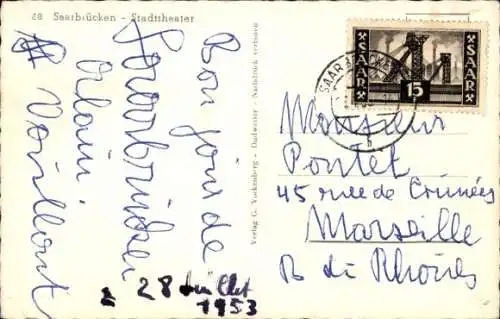 68 Saarbrücken - Stadttheater
Bon jour de
Saarbrücken
Alain
Verlag G. Vockenberg - Dudweiler - Nachdruck verboten
28 Juillet
1953
SAAR
15
SAAR
SAARBRÜCKEN
Monsieur
Pontet
45 rue de Crimées
Marseille
B du Rhônes